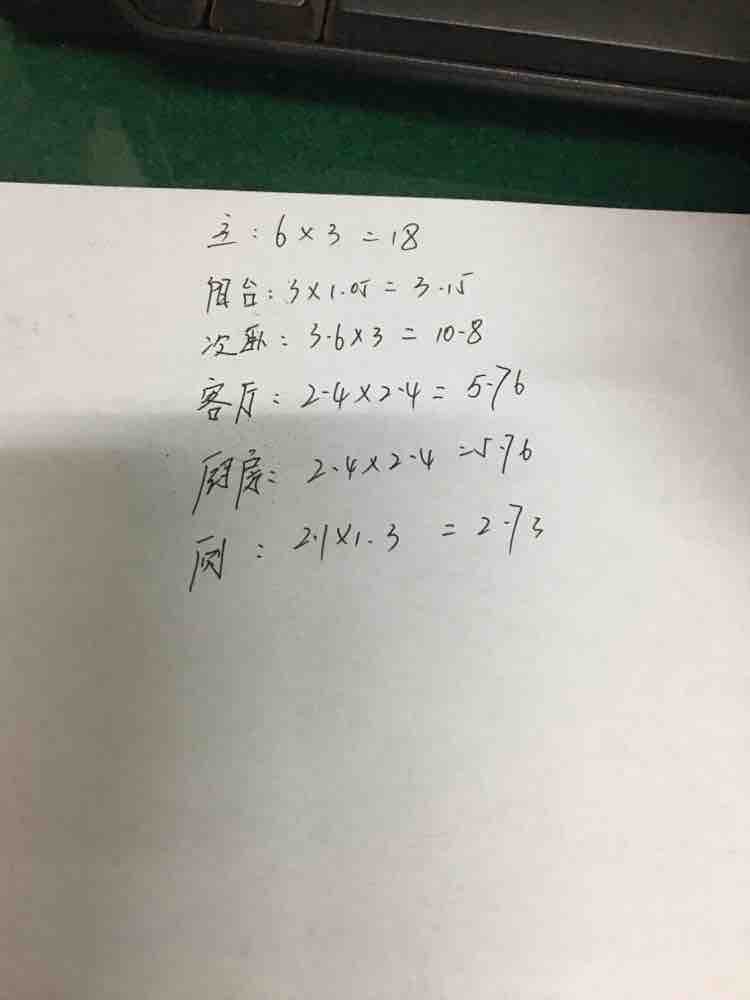 主：6×3=18
阳台：3×1.05=3.15
次卧：3.6×3=10.8
客厅：2.4×2.4=5.76
厨房：2.4×2.4=5.76
厕：2.1×1.3=2.73